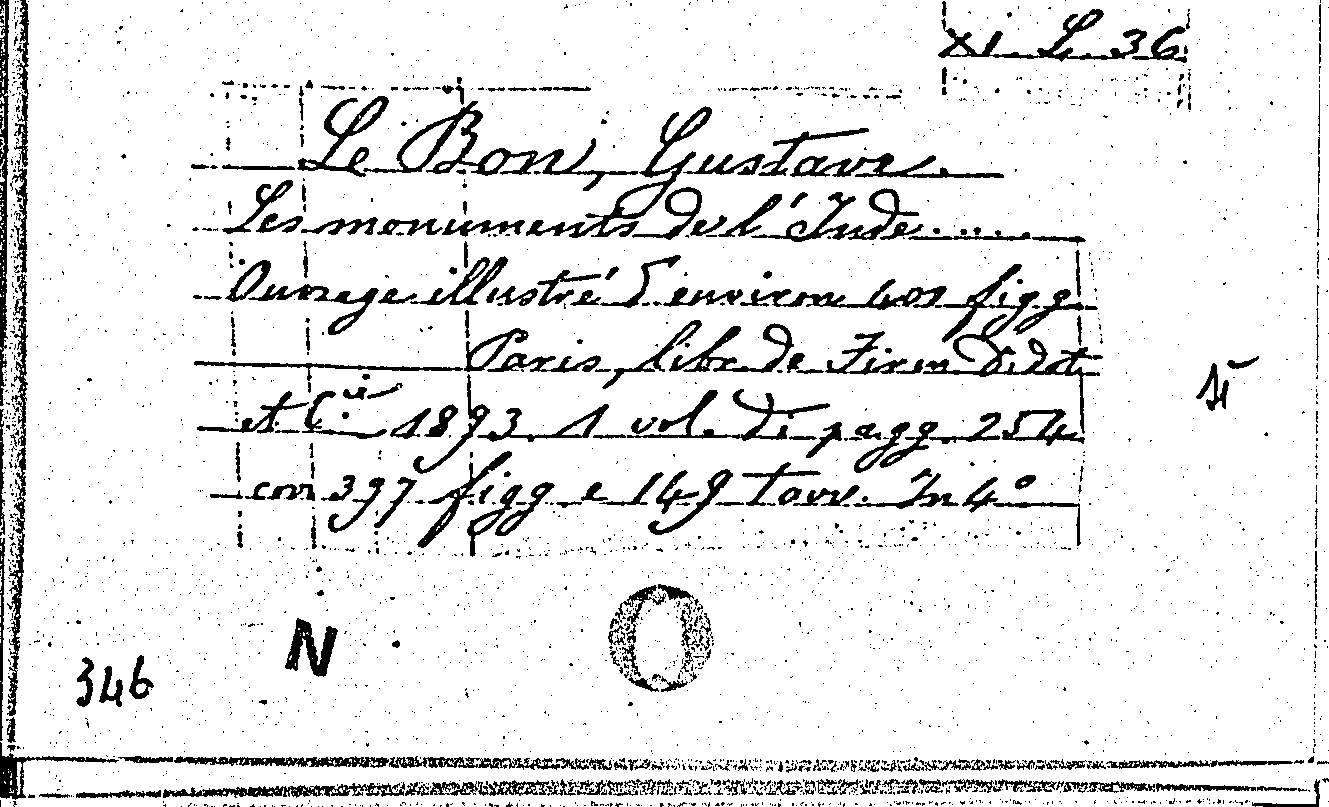 XI. L. 36
Le Bon, Gustave.
Les monuments de l'Inde.....
Ouvrage illustré d'environ 400 figg.
Paris, libr. de Firm. Didot
et C.ie 1893. 1 vol. di pagg. 254
con 397 figg e 149 tavv. In 4°
N
346